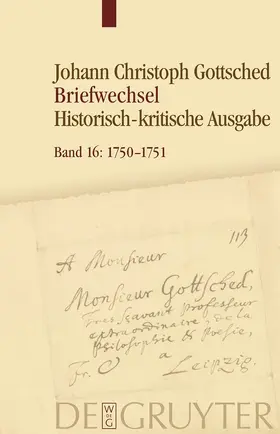 Johann Christoph Gottsched
Briefwechsel
Historisch-kritische Ausgabe
Band 16: 1750–1751
113
A Monsieur
Monsieur Gottsched,
Tres Scavant Professeur
extraordinaire de la
Philosophie & Poësie,
Fr. a Leipzig.
DE GRUYTER
W
DE
G